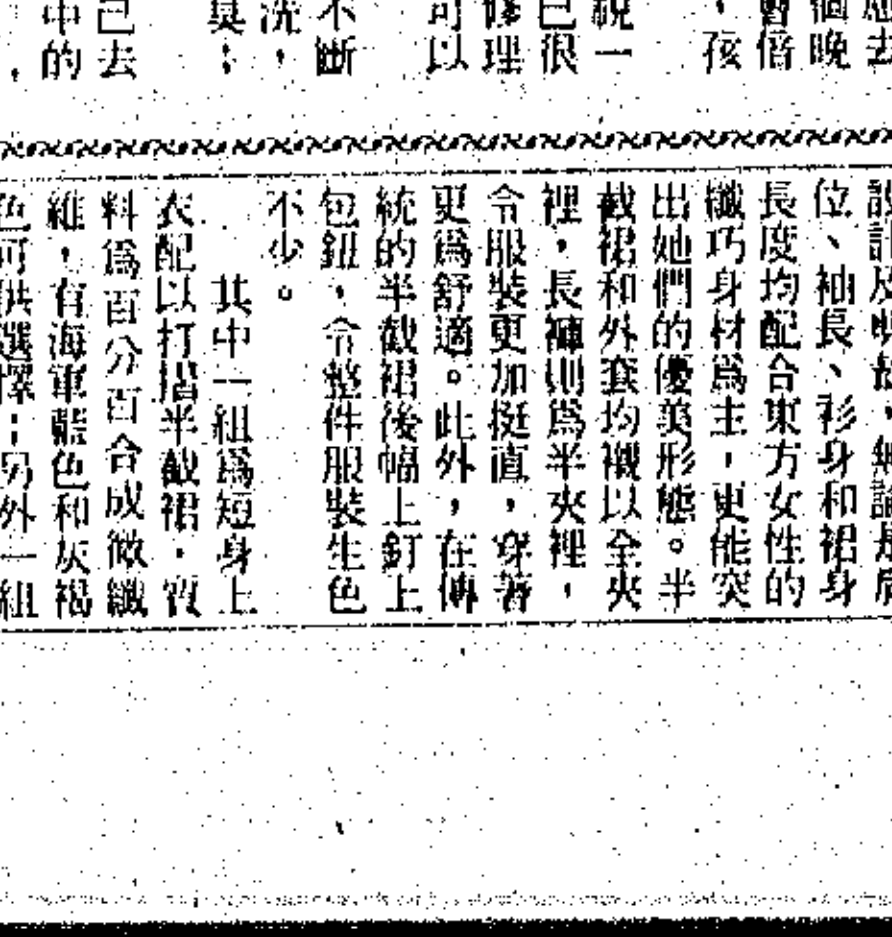 應去
個晚
會倍
，孩
說一
已很
修理
可以
不斷
洗，
臭；
己去
中的
，
設計及
，無論是
位、袖長、衫身和裙身
長度均配合東方女性的
纖巧身材爲主，更能突
出她們的優美形態。半
截裙和外套均襯以全夾
裡，長褲則爲半夾裡，
令服裝更加挺直，穿著
更爲舒適。此外，在傳
統的半截裙後幅上釘上
包鈕，令整件服裝生色
不少。
其中一組爲短身上
衣配以打摺半截裙，質
料爲百分百合成微纖
維，有海軍藍色和灰褐
色可供選擇；另外一組